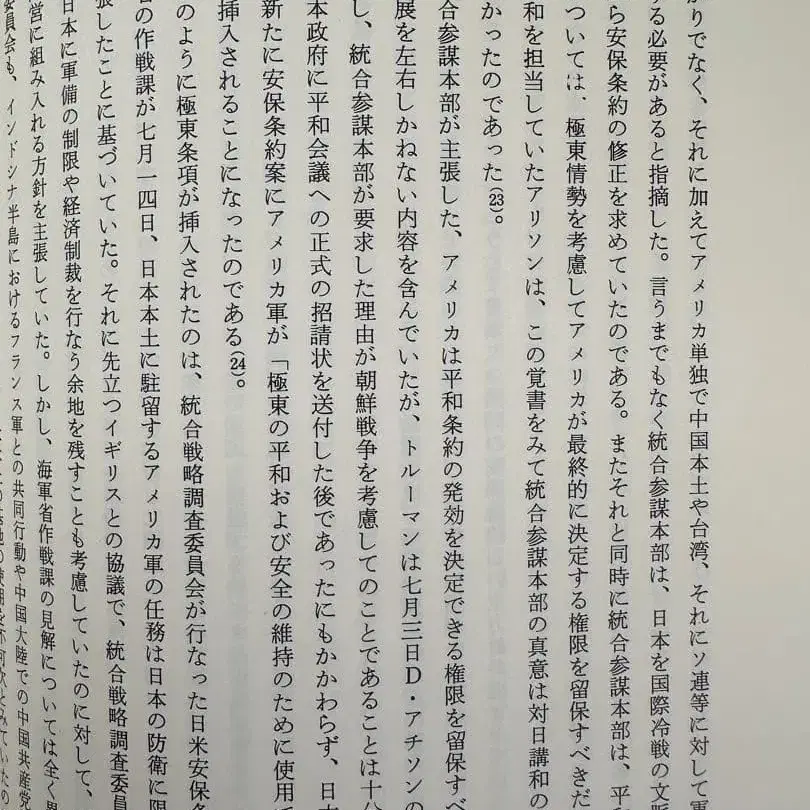 がりでなく、それに加えてアメリカ単独で中国本土や台湾、それにソ連等に対して軍
する必要があると指摘した。言うまでもなく統合参謀本部は、日本を国際冷戦の文脈
ら安保条約の修正を求めていたのである。またそれと同時に統合参謀本部は、平
ついては、極東情勢を考慮してアメリカが最終的に決定する権限を留保すべきだ
和を担当していたアリソンは、この覚書をみて統合参謀本部の真意は対日講和の
かったのであった(23)。
合参謀本部が主張した、アメリカは平和条約の発効を決定できる権限を留保すべ
展を左右しかねない内容を含んでいたが、トルーマンは七月三日D・アチソンの
し、統合参謀本部が要求した理由が朝鮮戦争を考慮してのことであることは十分
本政府に平和会議への正式の招請状を送付した後であったにもかかわらず、日本
新たに安保条約案にアメリカ軍が「極東の平和および安全の維持のために使用
挿入されることになったのである(24)。
のように極東条項が挿入されたのは、統合戦略調査委員会が行なった日米安保条
の作戦課が七月一四日、日本本土に駐留するアメリカ軍の任務は日本の防衛に限
張したことに基づいていた。それに先立つイギリスとの協議で、統合戦略調査委員
日本に軍備の制限や経済制裁を行なう余地を残すことも考慮していたのに対して、
営に組み入れる方針を主張していた。しかし、海軍省作戦課の見解については全く異
委員会も、インドシナ半島におけるフランス軍との共同行動や中国大陸での中国共産党